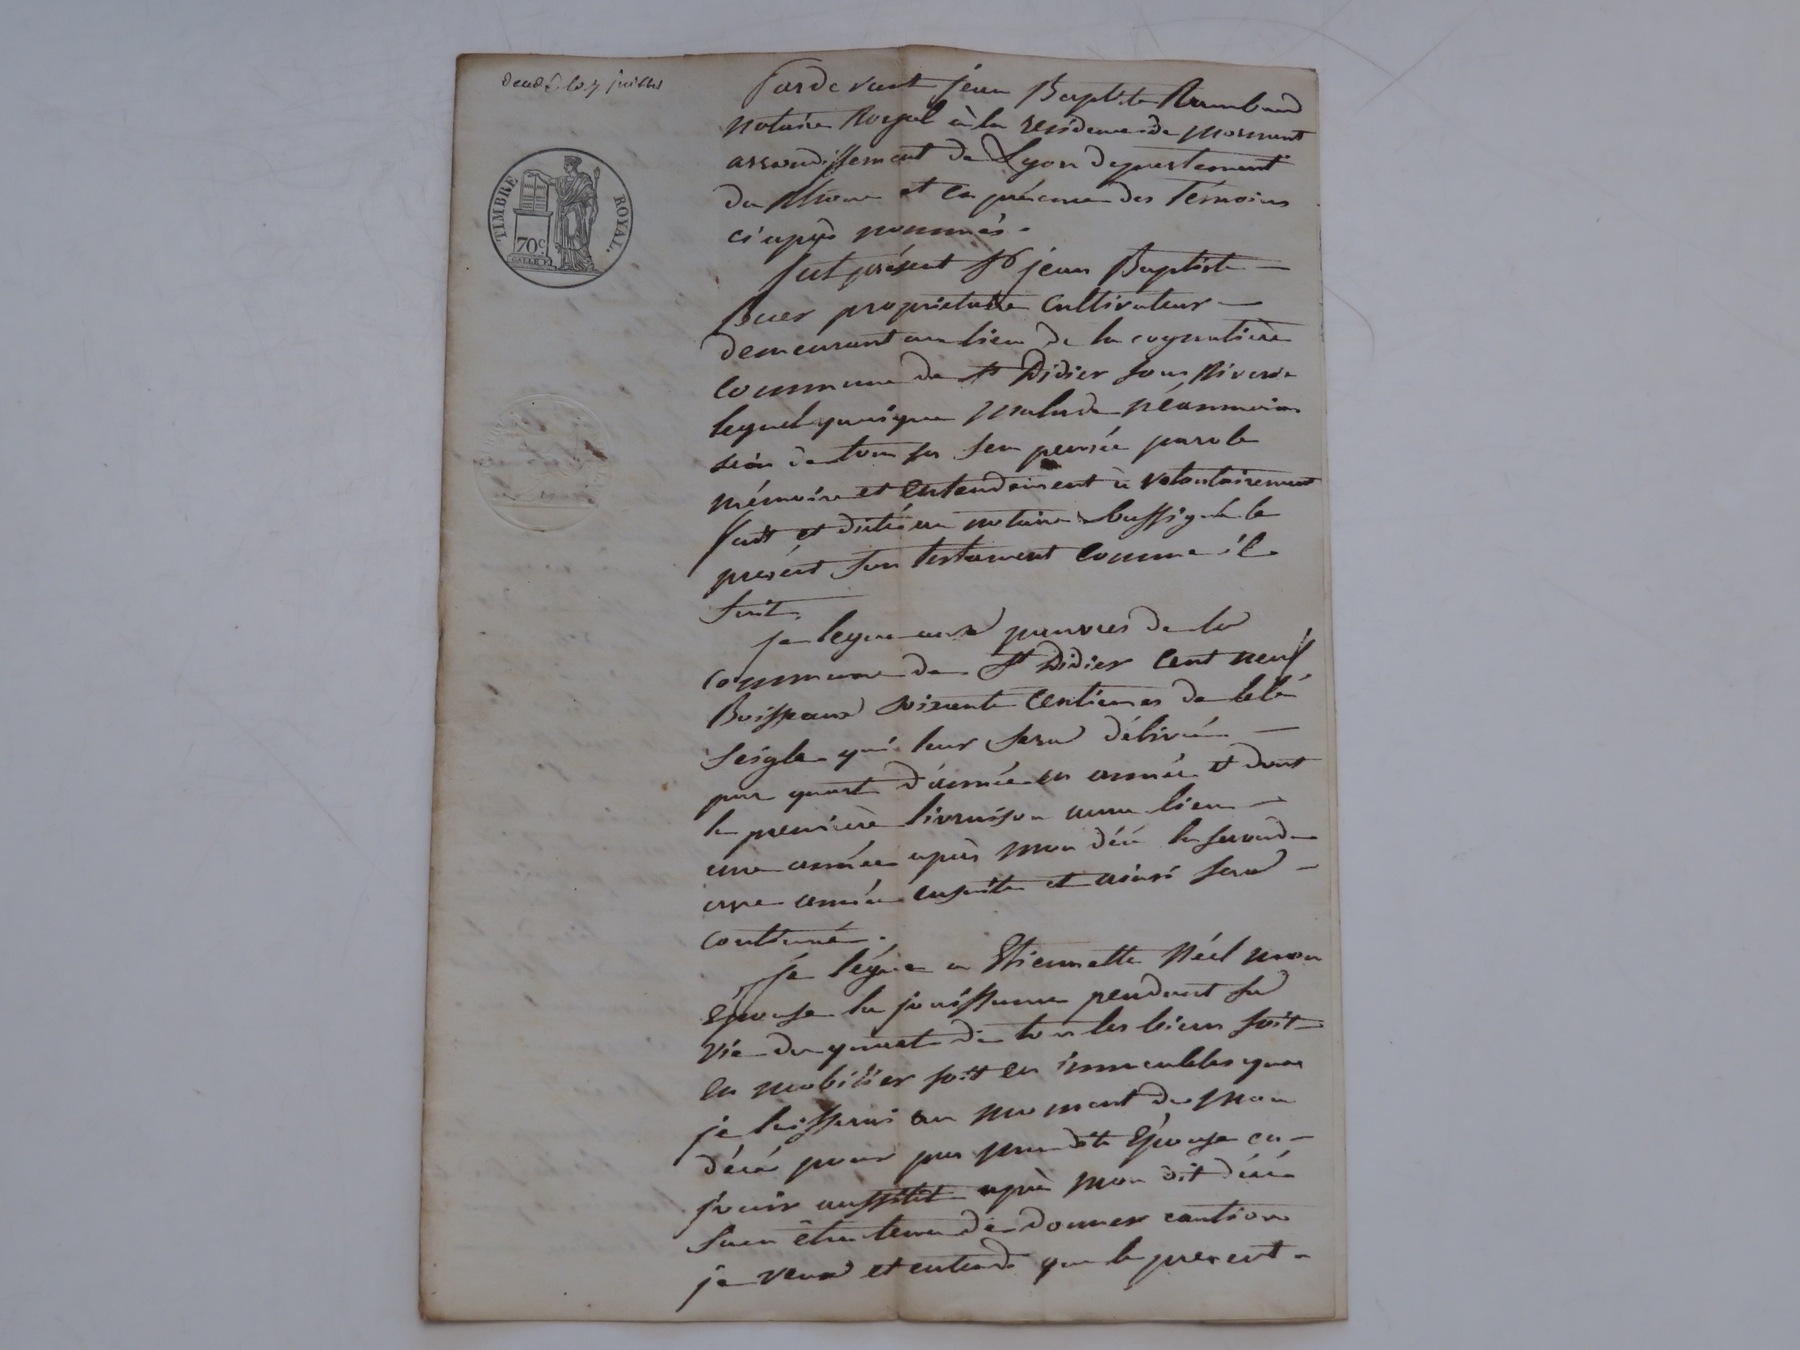 juillet
TIMBRE ROYAL
70c
Pardevant jean Baptiste Rambaud
notaire Royal à la residence de mornant
arrondissement de Lyon departement
du Rhone et en présence des témoins
ci après nommés.
fut présent Sr jean Baptiste
propriétaire cultivateur
demeurant au lieu de la
commune de St Didier sous Riverie
lequel quoique malade néanmoins
sain de tous ses sens pensée parole
mémoire et entendement à volontairement
fait et dicté au notaire soussigné le
présent son testament comme il
suit.
je legue aux pauvres de la
commune de St Didier Cent neuf
Boisseaux soixante centiemes de blé
seigle qui leur sera délivré
par quart d'année en année et dont
la première livraison aura lieu
une année après mon décé la seconde
une année ensuite et ainsi sera
continué.
je lègue a Etiennette Néel mon
épouse la jouissance pendant sa
vie du quart de tous les biens soit
en mobilier soit en immeubles que
je laisserai au moment de mon
décé pour par madite épouse en
jouir aussitôt après mon dit décé
sans être tenue de donner caution
je veux et entends que le present